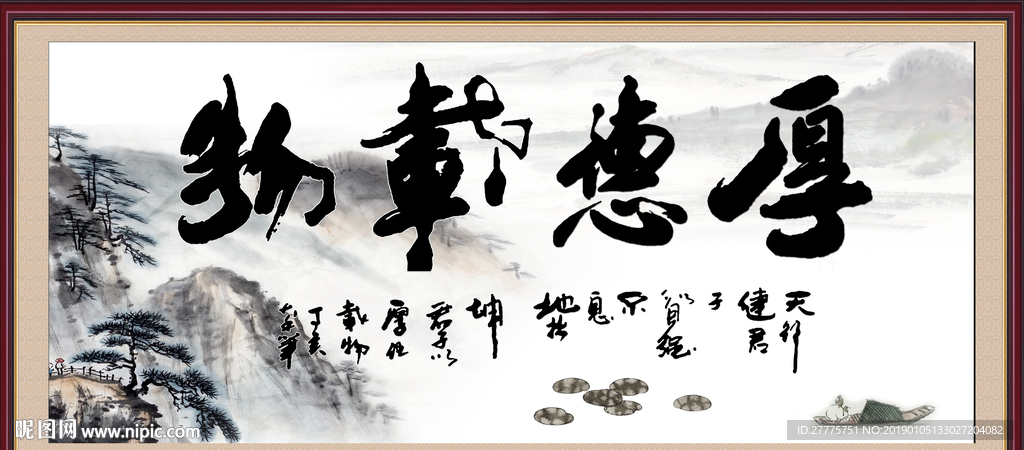 厚德載物
天行
健君
子
以自强
不
息
地势
坤
君子以
厚德
載物
丁亥
昵图网 www.nipic.com
ID:27775751 NO:20190105133027204082